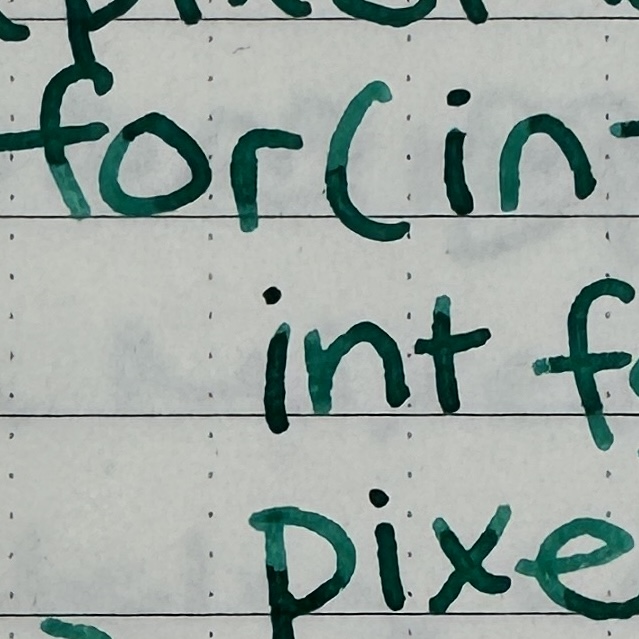 for(in
int f
pixe